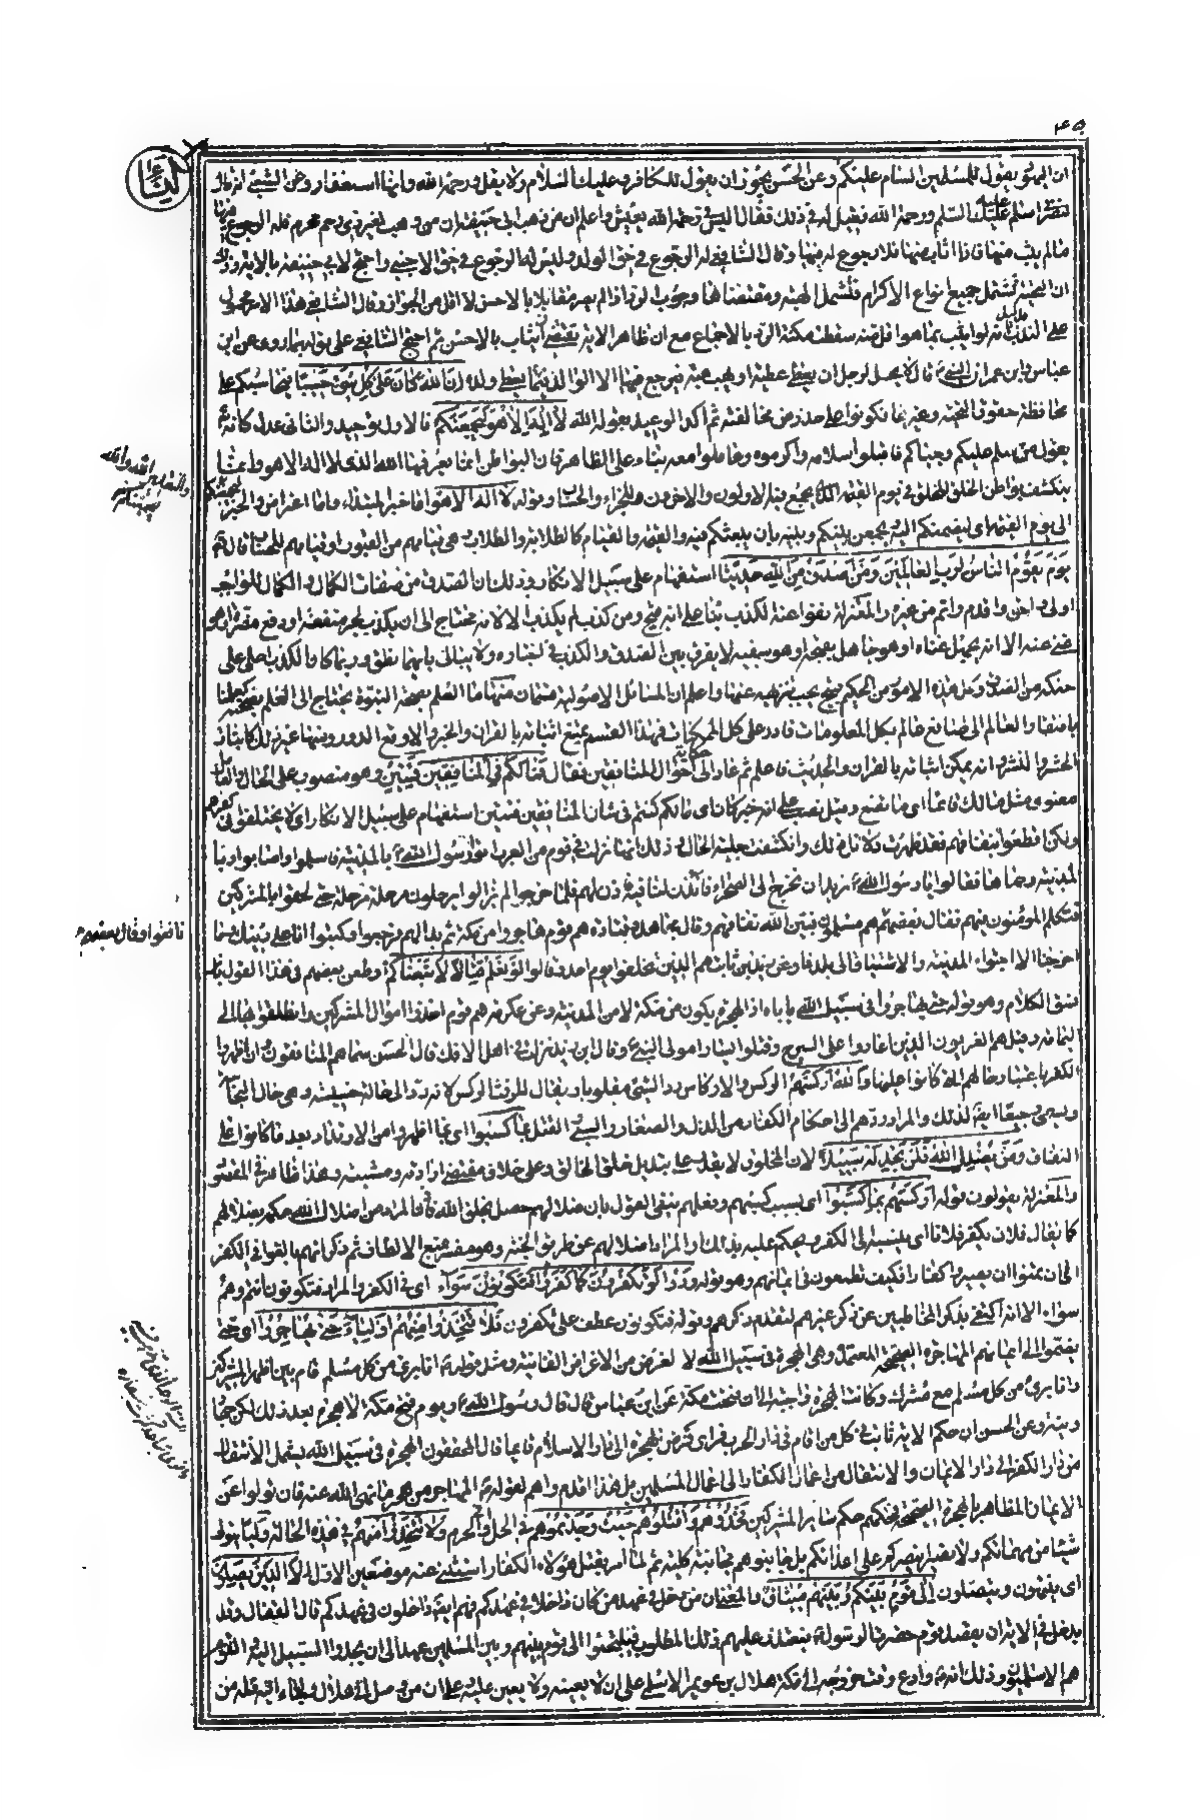 النساء
ان اليهود يقول للمسلمين السام عليكم وعن الحسن يجوز ان يقول للكافر وعليك السلام ولا يقل ورحمة الله وانها استغفار وعن الشعبي انه قال
لنصراني سلم عليه عليك السلم ورحمة الله فقيل له في ذلك فقال اليس في رحمة الله يعيش واعلم ان مذهب ابي حنيفة ان من وهب لغير ذي رحم محرم فله الرجوع فيها
مالم يثب منها فاذا اثيب منها فلا رجوع له فيها وقال الشافعي له الرجوع في حق الولد وليس له الرجوع في حق الاجنبي واحتج لابي حنيفة بالاية وذلك
ان التحية تشمل جميع انواع الاكرام فتشمل الهبة ومقتضاها وجوب الرد اذا لم يصر مقابلا بالاحسن لا اقل من الجواز وقال الشافعي هذا الامر محمول
على الندب بدليل انه لو اثيب بما هو اقل منه سقطت مكنة الرد بالاجماع مع ان ظاهر الاية يقتضي ان يثاب بالاحسن ثم احتج الشافعي على قوله بما روى عن ابن
عباس وابن عمر ان النبي ء قال لا يحل لرجل ان يعطي عطية او يهب هبة فيرجع فيها الا الوالد فيما يعطي ولده ان الله كان على كل شيء حسيبا فيحاسبكم على
محافظة حقوق التحية وغيرها فكونوا على حذر من مخالفته ثم اكد الوعيد بقوله الله لا اله الا هو ليجمعنكم فالاول توحيد والثاني عدل كانه
يقول من سلم عليكم وحياكم فاقبلوا سلامه واكرموه وعاملوا معه بناء على الظاهر فان البواطن انما يعرفها الله الذي لا اله الا هو وانما
ينكشف بواطن الخلق للخلق في يوم القيمة الذي يجمع فيه الاولون والاخرون للجزاء والحساب وقوله لا اله الا هو اما خبر المبتداء واما اعتراض والخبر ليجمعنكم
الى يوم القيمة اي ليضمنكم اليه يجمعن بينكم وبينه بان يبعثكم فيه والقيمة والقيام كالطلابة والطلاب هي قيامهم من القبور او قيامهم للحساب قال الله تعالى
يوم يقوم الناس لرب العالمين ومن اصدق من الله حديثا استفهام على سبيل الانكار وذلك ان الصدق من صفات الكمال والكمال للواجب
اولى واحق واقدم واتم من غيره والمعتزلة نفوا عنه الكذب بناء على انه قبيح ومن كذب لم يكذب الا لانه محتاج الى ان يكذب ليجر منفعة او دفع مضرة او هو
غني عنه الا انه يجهل غناه او هو جاهل بقبحه او هو سفيه لا يفرق بين الصدق والكذب في اخباره ولا يبالي بايهما نطق وربما كان الكذب احلى على
حنكه من الصدق وكل هذه الامور من الحكيم قبيح يجب تنزيهه عنها واعلم ان المسائل الاصولية قسمان منها ما العلم بصحة النبوة يحتاج الى العلم بصحته كعلمنا
بافتقار العالم الى صانع عالم بكل المعلومات قادر على كل الممكنات فهذا القسم يمتنع اثباته بالقران والخبر والا وقع الدور ومنها غير ذلك كاثبات
الحشر والنشر انه يمكن اثباته بالقران والحديث فاعلم ثم عاد الى حكاية احوال المنافقين فقال فما لكم في المنافقين فئتين وهو منصوب على الحال والعامل
معنوي مثل مالك قائما اي ما تصنع وقيل نصب على انه خبر كان اي مالكم كنتم في شان المنافقين فئتين استفهام على سبيل الانكار اي لا يختلفوا في كفرهم
ولكن اقطعوا بنفاقهم فقد ظهرت دلائل ذلك وانكشفت جلية الحال وذلك انها نزلت في قوم من العرب اتوا رسول الله ء بالمدينة فاسلموا واصابوا وباء
المدينة وحماها فقالوا يا رسول الله ء نريد ان نخرج الى الصحراء فائذن لنا فيه فاذن لهم فلما خرجوا لم يزالوا يرحلون مرحلة مرحلة حتى لحقوا بالمشركين
فتكلم المؤمنون فيهم فقال بعضهم هم مسلمون فبين الله نفاقهم وقال مجاهد وقتادة هم قوم هاجروا من مكة ثم بدا لهم فرجعوا وكتبوا انا على دينك وما
اخرجنا الا اجتواء المدينة والاشتياق الى بلدنا وعن زيد بن ثابت هم الذين تخلفوا يوم احد وقالوا لو نعلم قتالا لاتبعناكم وطعن بعضهم في هذا القول بان
نسق الكلام وهو قوله حتى يهاجروا في سبيل الله ياباه اذ الهجرة يكون من مكة لا من المدينة وعن عكرمة هم قوم اخذوا اموال المشركين وانطلقوا بها الى
اليمامة وقيل هم العرنيون الذين اغاروا على السرح وقتلوا يسارا مولى النبي ء وقال ابن زيد نزلت في اهل الافك قال الحسن سماهم المنافقون وان اظهروا
الكفر باعتبار حالهم التي كانوا عليها والله اركسهم الركس والاركاس رد الشيء مقلوبا ويقال للروث الركس لانه رد الى حالة خسيسة وهي حال النجاسة
ويسمى رجيعا ايضا لذلك والمراد ردهم الى احكام الكفار من الذل والصغار والسبي القتل بما كسبوا اي بما اظهروا من الارتداد بعد ما كانوا على
النفاق ومن يضلل الله فلن تجد له سبيلا لان المخلوق لا يقدر على تبديل خلق الخالق وعلى خلاف مقتضى ارادته ومشيته وهذا ظاهر في المقصود
والمعتزلة يقولون قوله اركسهم بما كسبوا اي بسبب كسبهم وفعلهم ينفي القول بان ضلالهم حصل بخلق الله فاذن فالمراد من اضلال الله حكمه بضلالهم
كما يقال فلان يكفر فلانا اي ينسبه الى الكفر ويحكم عليه بذلك او المراد اضلالهم عن طريق الجنة وهو مفسر بمنع الالطاف ثم ذكر انهم بالغوا في الكفر
الى ان تمنوا ان يصيروا كفارا فكيف تطمعون في ايمانهم وهو قوله ودوا لو تكفرون كما كفروا فتكونون سواء اي في الكفر والمراد فتكونون انتم وهم
سواء الا انه اكتفى بذكر المخاطبين عن ذكر غيرهم لتقدم ذكرهم وقوله فتكونون عطف على تكفرون فلا تتخذوا منهم اولياء حتى يهاجروا اي حتى
يضموا الى ايمانهم المهاجرة الصحيحة المعتدل وهي الهجرة في سبيل الله لا لغرض من الاغراض الفانية ومثل قوله ء انا بريء من كل مسلم قام بين اظهر المشركين
وانا بريء من كل مسلم مع مشرك وكانت الهجرة واجبة الى ان فتحت مكة عن ابن عباس قال قال رسول الله ء يوم فتح مكة لا هجرة بعد ذلك لكن جهاد
ونية وعن الحسن ان حكم الاية ثابت في كل من اقام في دار الحرب فراى فرض الهجرة الى دار الاسلام قائما قال المحققون الهجرة في سبيل الله يشمل الانتقال
من دار الكفر الى دار الايمان والانتقال من اعمال الكفار الى اعمال المسلمين بل هذا اقدم واهم لقوله ء المهاجر من هجر ما نهى الله عنه فان تولوا عن
الايمان المظاهر بالهجرة الصحيحة فحكمهم حكم سائر المشركين فخذوهم واقتلوهم حيث وجدتموهم في الحل والحرم ولا تتخذوا منهم في هذه الحالة وليا يتولى
شيئا من مهماتكم ولا نصيرا ينصركم على اعدائكم بل جانبوهم مجانبة كلية ثم لما امر بقتل هؤلاء الكفار استثنى عنه موضعين الاول الا الذين يصلون
اي ينتهون ويتصلون الى قوم بينكم وبينهم ميثاق والمعنى ان من دخل في عهد من كان داخلا في عهدكم فهم ايضا داخلون في عهدكم قال القفال وقد
يدخل في الاية ان يقصد قوم حضرة الرسول ء فيتعذر عليهم ذلك المطلوب فيلتجئوا الى قوم بينهم وبين المسلمين عهد الى ان يجدوا السبيل اليه والقوم
هم الاسلميون وذلك انه ء وادع وقت خروجه الى مكة هلال بن عويمر الاسلمي على ان لا يعينه ولا يعين عليه وعلى ان من وصل الى هلال ولجاء اليه فله من
نافقوا وقال بعضهم